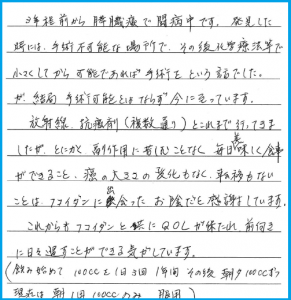 3年程前から膵臓癌で闘病中です。発見した
時には、手術不可能な場所で、その後化学療法等で
小さくしてから可能であれば手術をという話でした。
が、結局手術可能とはならず今に至っています。
放射線、抗癌剤(複数通り)とこれまで行ってきま
したが、とにかく副作用に苦しむことなく毎日美味しく食事
ができること、癌の大きさの変化もなく、転移もない
ことは、フコイダンに出会ったお陰だと感謝しています。
これからもフコイダンと共にQOLが保たれ、前向き
に日々過すことができる気がしています。
(飲み始めて100ccを1日3回1年間その後朝夕100ccずつ
現在は朝1回100ccのみ服用)